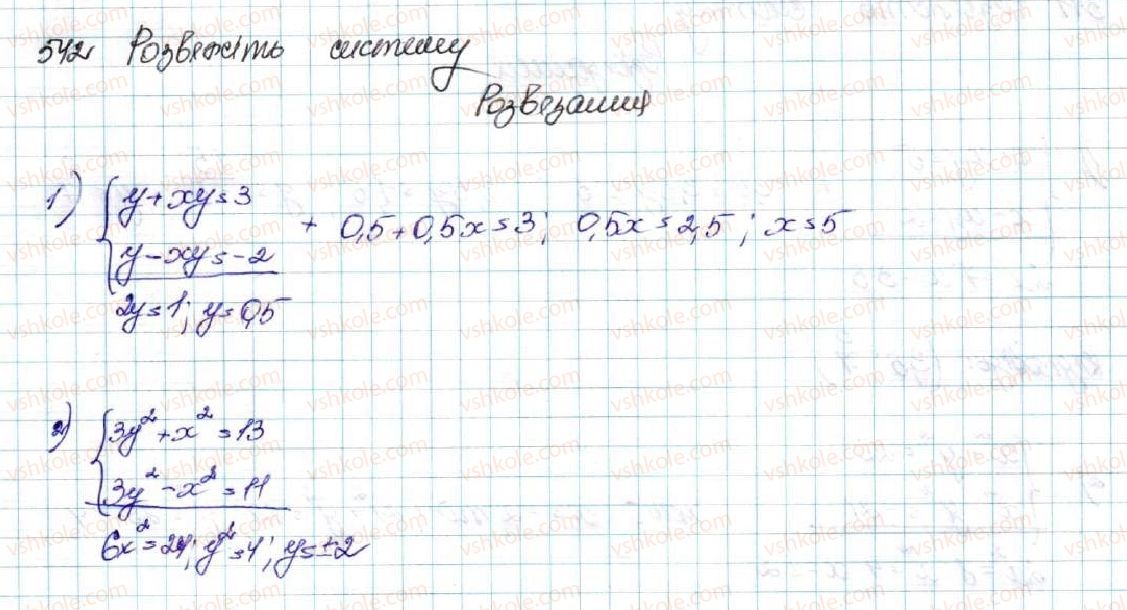 542 Розвяжіть систему
Розвязання
1) { y + xy = 3
y - xy = -2
+ 0,5 + 0,5x = 3; 0,5x = 2,5; x = 5
2y = 1; y = 0,5
2) { 3y² + x² = 13
3y² - x² = 11
6x² = 24; y² = 4; y = ±2